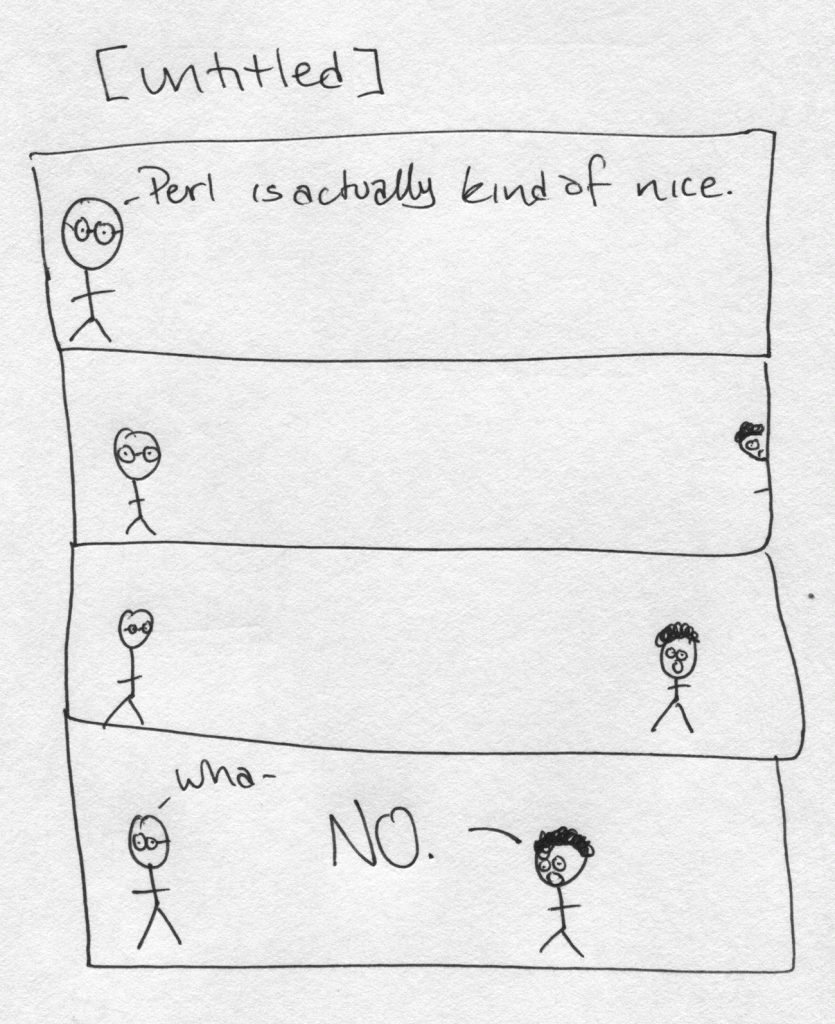 [untitled]
Perl is actually kind of nice.
wha-
NO.